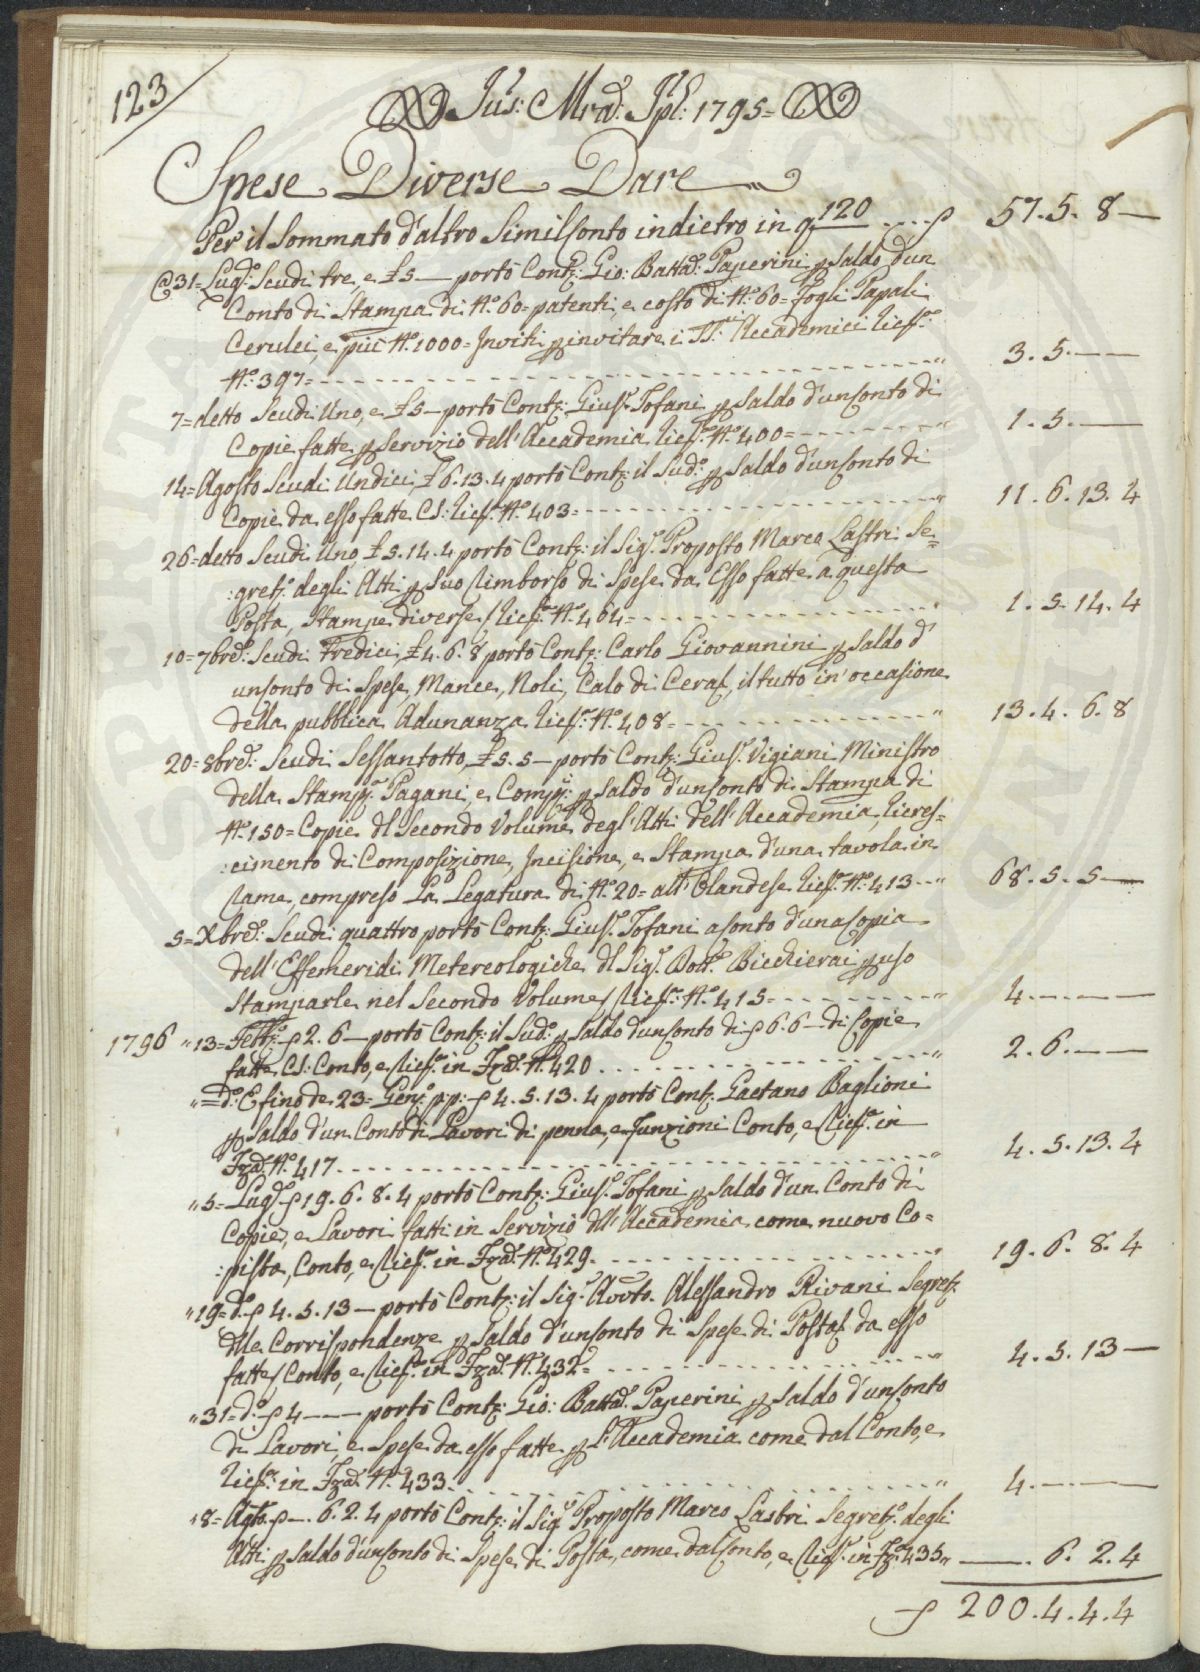 123
Jus: Mrad: Jpl: 1795=
Spese Diverse Dare
Per il Sommato d'altro Simil Conto indietro in q 120 57. 5. 8 —
@ 31= Lug.o Scudi tre, e £ 5 — portò Cont: Gio: Batta: Paperini p saldo d'un
Conto di Stampa di N.o 60= patenti, e costo di N.o 60= Fogli Papali
Cerulei, e più N.o 1000= Inviti p invitare i SS.ri Accademici Ric.a
N.o 397= 3. 5. —
7= detto Scudi Uno, e £ 5 — portò Cont: Gius.e Tofani p saldo d'un Conto di
Copie fatte p servizio dell'Accademia Ric.a N.o 400= 1. 5. —
14= Agosto Scudi Undici, £ 6. 13. 4 portò Cont: il Sud.o p saldo d'un Conto di
Copie da esso fatte CS: Ric.a N.o 403= 11. 6. 13. 4
26= detto Scudi Uno £ 5. 14. 4 portò Cont: il Sig.r Proposto Marco Lastri Se=
:gret.o degli Atti p suo rimborso di Spese da Esso fatte a questa
Posta, Stampe diverse Ric.a N.o 404= 1. 5. 14. 4
10= 7bre: Scudi Tredici, £ 4. 6. 8 portò Cont: Carlo Giovannini p saldo d'
un Conto di Spese, Mance, Noli, Calo di Cera, il tutto in occasione
della pubblica Adunanza Ric.a N.o 408= 13. 4. 6. 8
20= 8bre: Scudi Sessantotto, £ 5. 5 — portò Cont: Gius.e Vigiani Ministro
della Stamp.a Pagani, e Comp.i: p saldo d'un Conto di Stampa di
N.o 150= Copie dl Secondo Volume degl'Atti dell'Accademia, Ricres=
:cimento di Composizione, Incisione, e Stampa d'una tavola in
rame, compreso La Legatura di N.o 20= all'Olandese Ric.a N.o 413 68. 5. 5 —
5= Xbre: Scudi quattro portò Cont: Gius.e Tofani a Conto d'una Copia
dell'Effemeridi Metereologiche dl Sig.r Dott.e Bicchierai p uso
Stamparle nel Secondo Volume Ric.a N.o 415= 4. — —
1796 " 13= Febb.o 2. 6 — portò Cont: il Sud.o p saldo d'un Conto di 6. 6 — di Copie
fatte CS: Conto, e Ric.a in Fza: N.o 420 2. 6. —
" = d.o E fino de 23= Gen.o p.p: 4. 5. 13. 4 portò Cont: Gaetano Baglioni
p saldo d'un Conto di Lavori di penna, e funzioni Conto, e Ric.a in
Fza: N.o 417 4. 5. 13. 4
" 5= Lug.o 19. 6. 8. 4 portò Cont: Gius.e Tofani p saldo d'un Conto di
Copie, e Lavori fatti in Servizio dll'Accademia come nuovo Co=
:pista, Conto, e Ric.a in Fza: N.o 429. 19. 6. 8. 4
" 19= d.o 4. 5. 13 — portò Cont: il Sig.r Avvto. Alessandro Rivani Segret.o
dlle Corrispondenze p saldo d'un Conto di Spese di Posta da esso
fatte, Conto, e Ric.a in Fza: N.o 432= 4. 5. 13 —
" 31= d.o 4 — — portò Cont: Gio: Batta: Paperini p saldo d'un Conto
di Lavori, e Spese da esso fatte p l'Accademia come dal Conto, e
Ric.a in Fza: N.o 433. 4. — —
" 8= Agto. — 6. 2. 4 portò Cont: il Sig.r Proposto Marco Lastri Segret.o degli
Atti p saldo d'un Conto di Spese di Posta, come dal Conto, e Ric.a in Fza: 435 — 6. 2. 4
200. 4. 4. 4